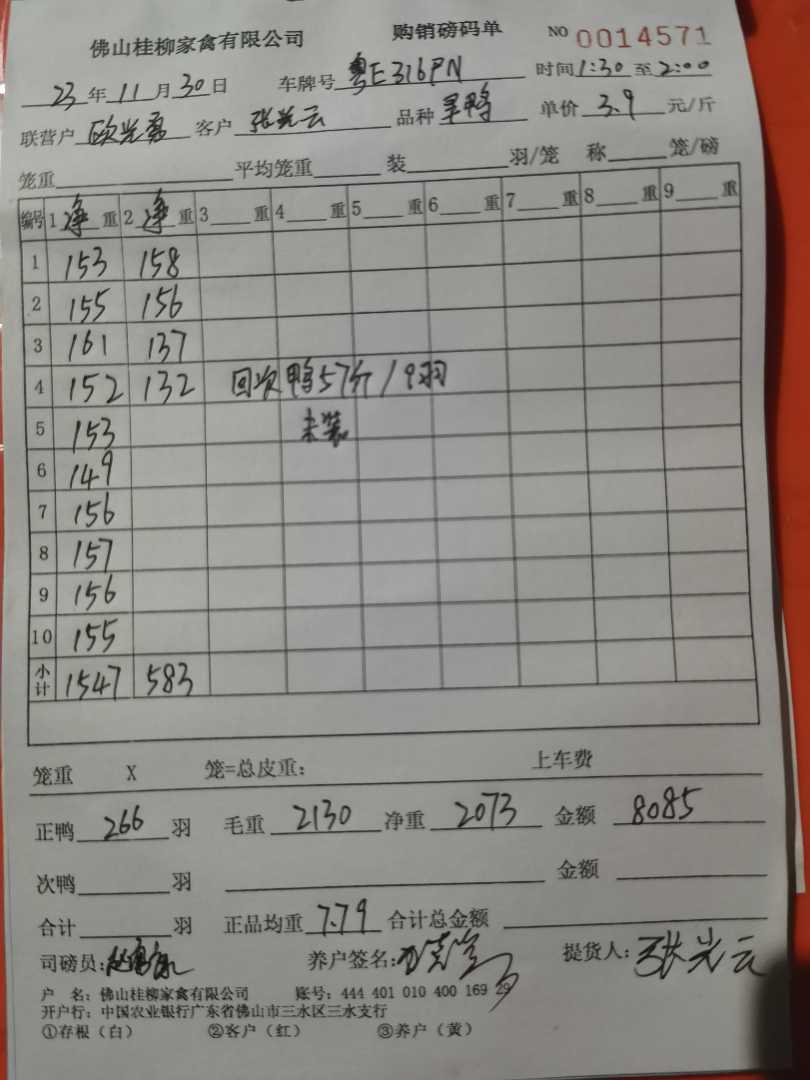 佛山桂柳家禽有限公司 购销磅码单 NO 0014571
23年11月30日 车牌号 粤E316PN 时间 1:30 至 2:00
联营户 欧光勇 客户 张光云 品种 单价 3.9 元/斤
笼重 平均笼重 装 羽/笼 称 笼/磅
编号 1 净 重 2 净 重 3 重 4 重 5 重 6 重 7 重 8 重 9 重
1 153 158
2 155 156
3 161 137
4 152 132 回次鸭57斤/9羽
5 153 未装
6 149
7 156
8 157
9 156
10 155
小计 1547 583
笼重 X 笼=总皮重: 上车费
正鸭 266 羽 毛重 2130 净重 2073 金额 8085
次鸭 羽 金额
合计 羽 正品均重 7.79 合计总金额
司磅员: 养户签名: 提货人: 张光云
户 名: 佛山桂柳家禽有限公司 账号: 444 401 010 400 169 29
开户行: 中国农业银行广东省佛山市三水区三水支行
①存根(白) ②客户(红) ③养户(黄)